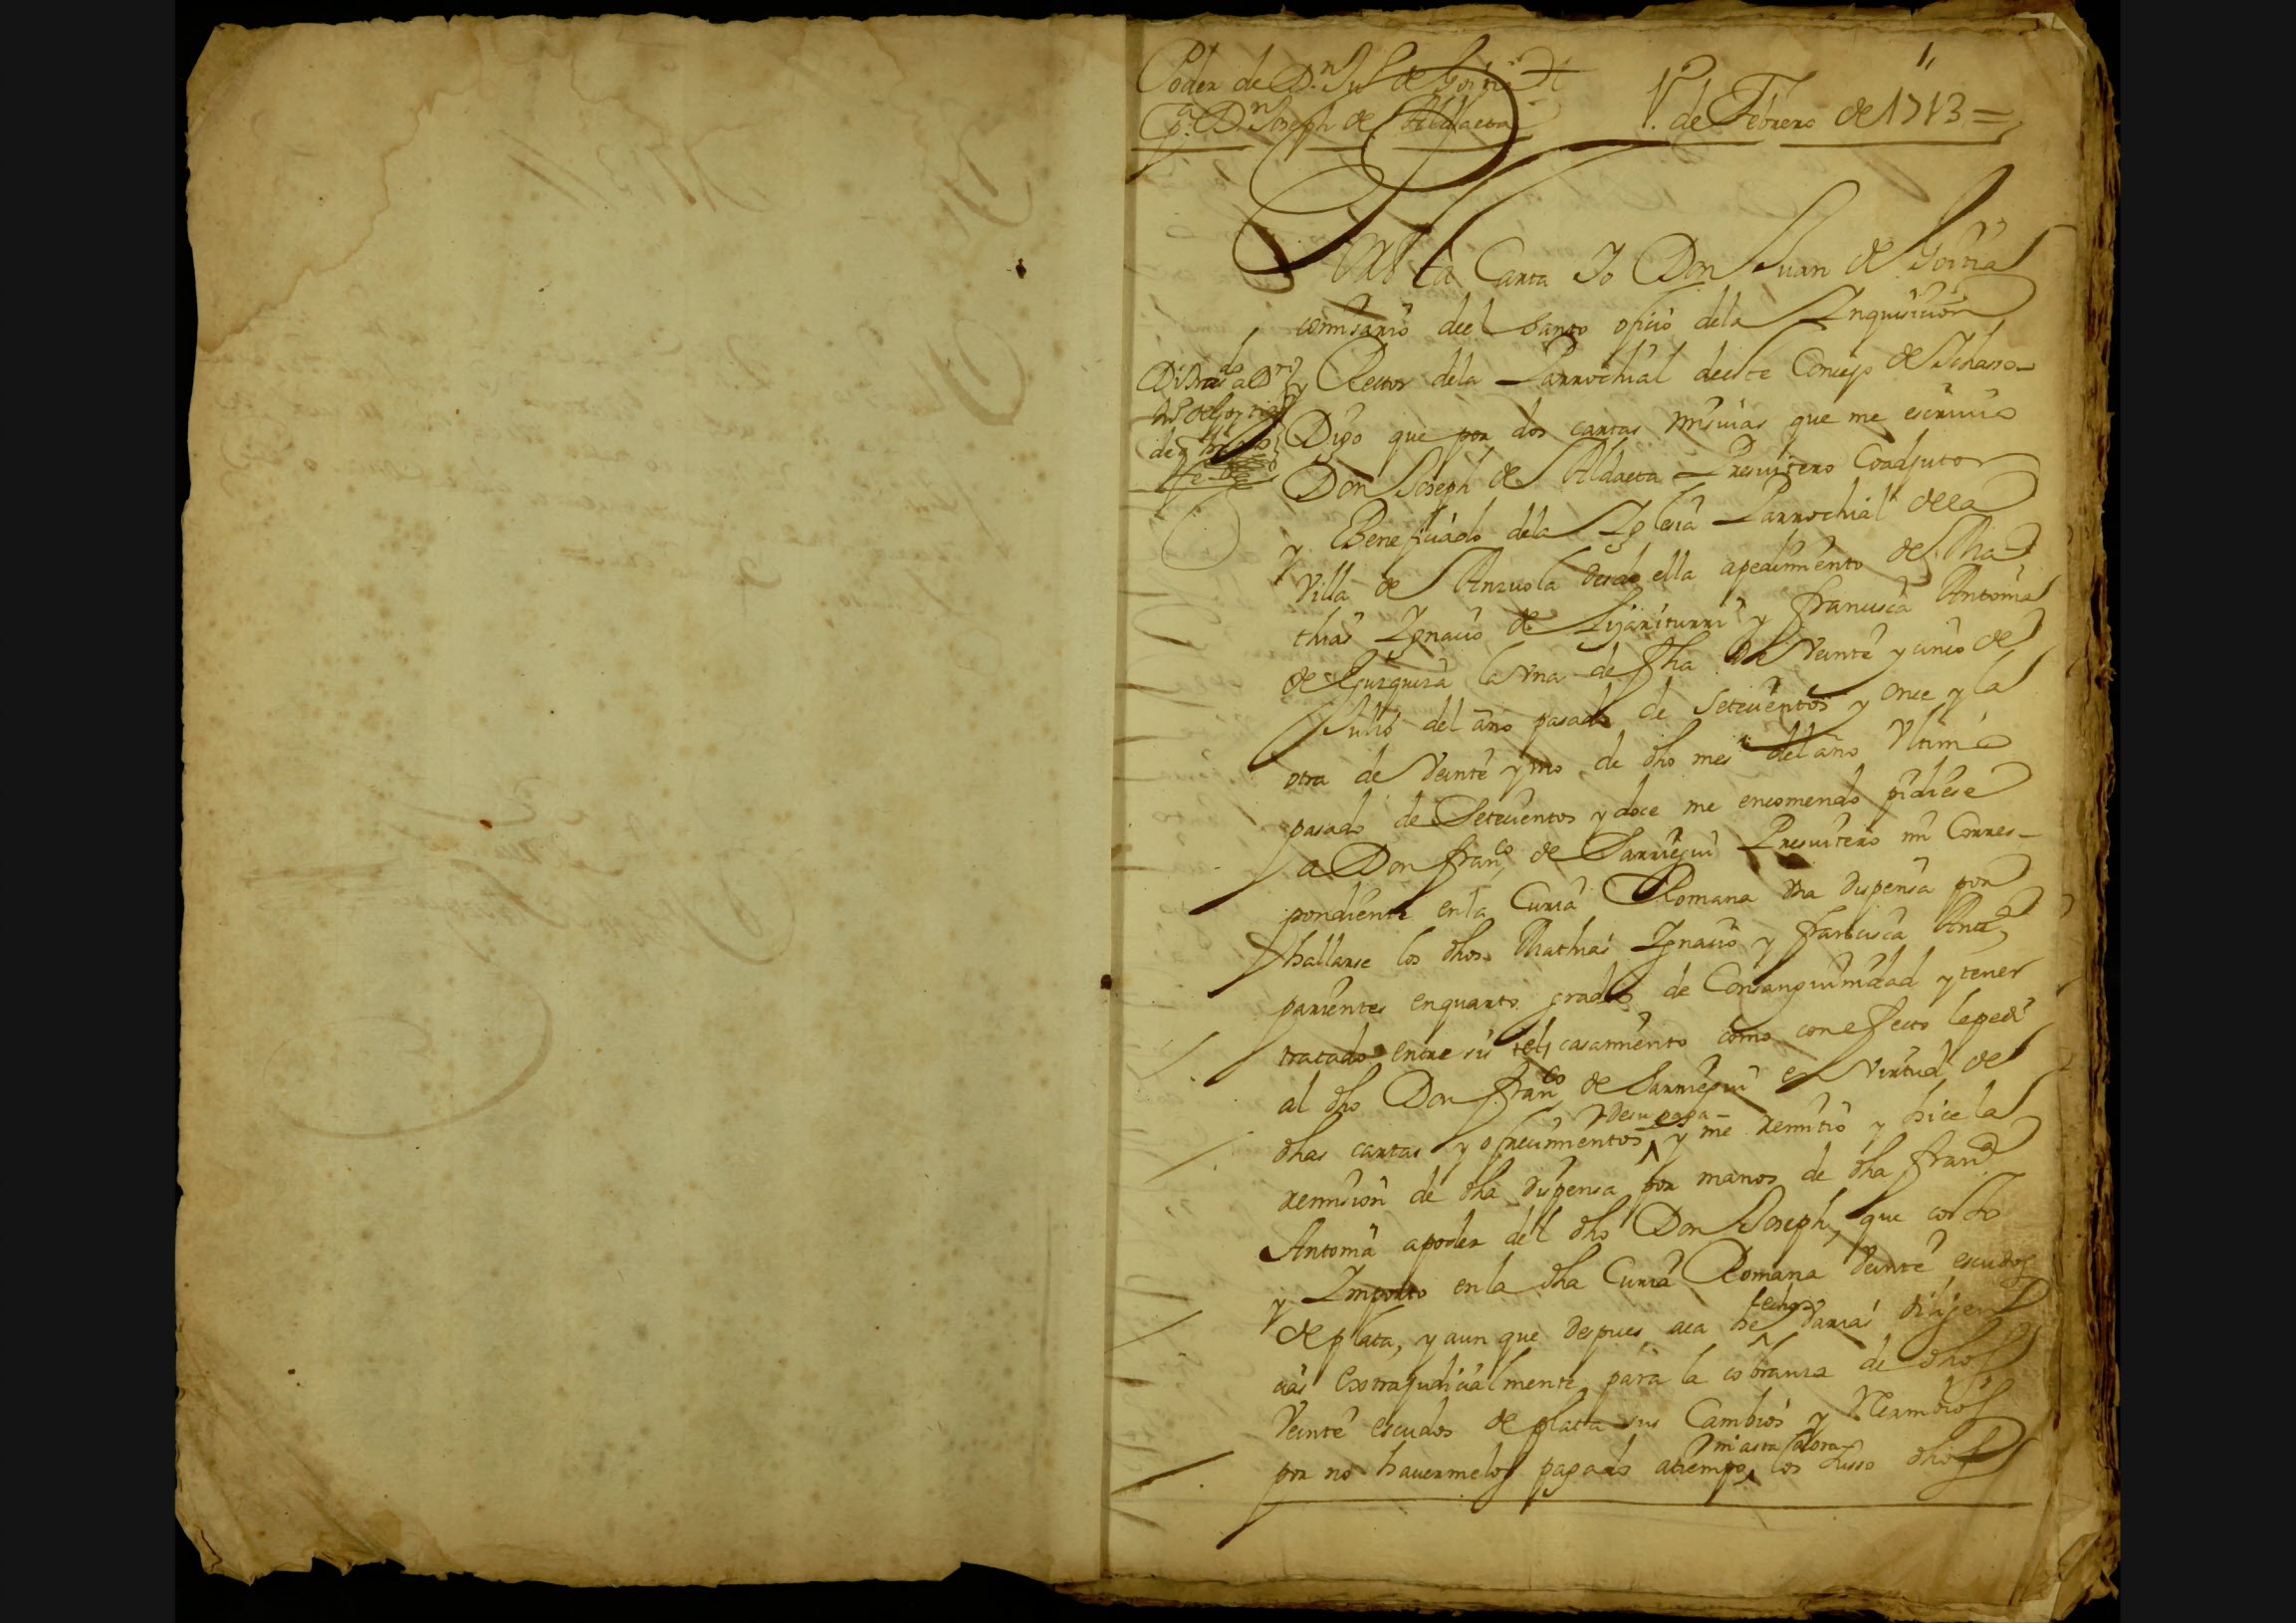 1,,
Poder de Dn Ju° de Gorttia
pa Dn Joseph de Aldaeta
1° de Febrero de 1713=
Por esta Carta Yo Don Juan de Gortia
comisario deel santo oficio dela Inquisicion
Disrado a Dn
Ju° de Gortia
y Rector dela Parrochial deeste Concejo de
Digo que por dos cartas misivas que me escrivio
Don Joseph de Aldaeta Presvitero Coadjutor
y Beneficiado dela Iglesia Parrochial dela
Villa de Anzuola desde ella apedimento de Ma-
thias Ignacio de Lizariturri y francisca Antonia
de la vna de fha de Veinte y cinco de
Julio del año pasado de Setecientos y once y la
otra de Veinte y vno de dho mes del año Vltimo
pasado de Setecientos y doce me encomendo pidiese
a Don franco de Sarriegui Presvitero mi Corres-
pondiente enla Curia Romana vna dispensa por
hallarse los dhos Mathias Ignacio y francisca Anta
parientes enquarto grado de Consanguinidad y tener
tratado entre si casamiento como conefecto lepedi
al dho Don franco de Sarriegui en Virtud de
dhas cartas y ofrecimientos y desu paga y me remitio y hice la
remision de dha dispensa por manos de dha franca
Antonia apoder del dho Don Joseph, que costo
y Importo enla dha Curia Romana Veinte escudos
de plata, y aun que despues aca he hecho varias diligen
cias extrajudicialmente para la cobranza de dhos
Veinte escudos de plata sus Cambios y Recambios
por no havermelos pagado atiempo ni asta aora los suso dhos